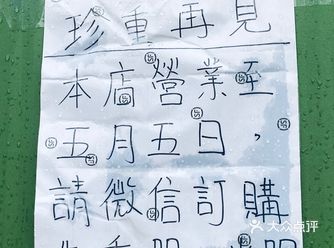 珍重再見
本店營業至
五月五日，
請微信訂購
大众点评